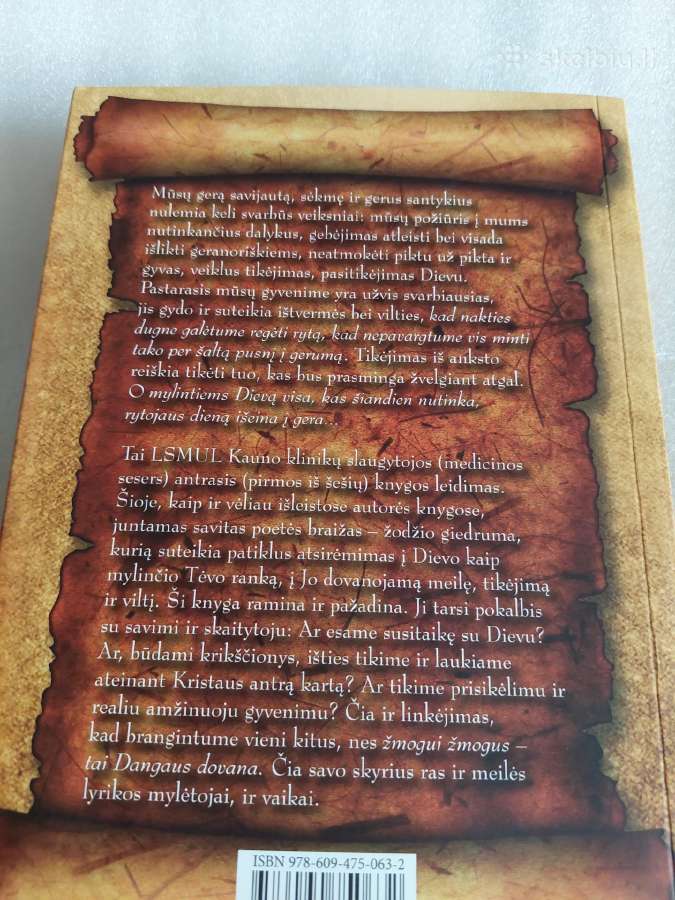 skelbiu.lt
Mūsų gerą savijautą, sėkmę ir gerus santykius
nulemia keli svarbūs veiksniai: mūsų požiūris į mums
nutinkančius dalykus, gebėjimas atleisti bei visada
išlikti geranoriškiems, neatmokėti piktu už pikta ir
gyvas, veiklus tikėjimas, pasitikėjimas Dievu.
Pastarasis mūsų gyvenime yra užvis svarbiausias,
jis gydo ir suteikia ištvermės bei vilties, kad nakties
dugne galėtume regėti rytą, kad nepavargtume vis minti
tako per šaltą pusnį į gerumą. Tikėjimas iš anksto
reiškia tikėti tuo, kas bus prasminga žvelgiant atgal.
O mylintiems Dievą visa, kas šiandien nutinka,
rytojaus dieną išeina į gera...
Tai LSMUL Kauno klinikų slaugytojos (medicinos
sesers) antrasis (pirmos iš šešių) knygos leidimas.
Šioje, kaip ir vėliau išleistose autorės knygose,
juntamas savitas poetės braižas – žodžio giedruma,
kurią suteikia patiklus atsirėmimas į Dievo kaip
mylinčio Tėvo ranką, į Jo dovanojamą meilę, tikėjimą
ir viltį. Ši knyga ramina ir pažadina. Ji tarsi pokalbis
su savimi ir skaitytoju: Ar esame susitaikę su Dievu?
Ar, būdami krikščionys, išties tikime ir laukiame
ateinant Kristaus antrą kartą? Ar tikime prisikėlimu ir
realiu amžinuoju gyvenimu? Čia ir linkėjimas,
kad brangintume vieni kitus, nes žmogui žmogus –
tai Dangaus dovana. Čia savo skyrius ras ir meilės
lyrikos mylėtojai, ir vaikai.
ISBN 978-609-475-063-2